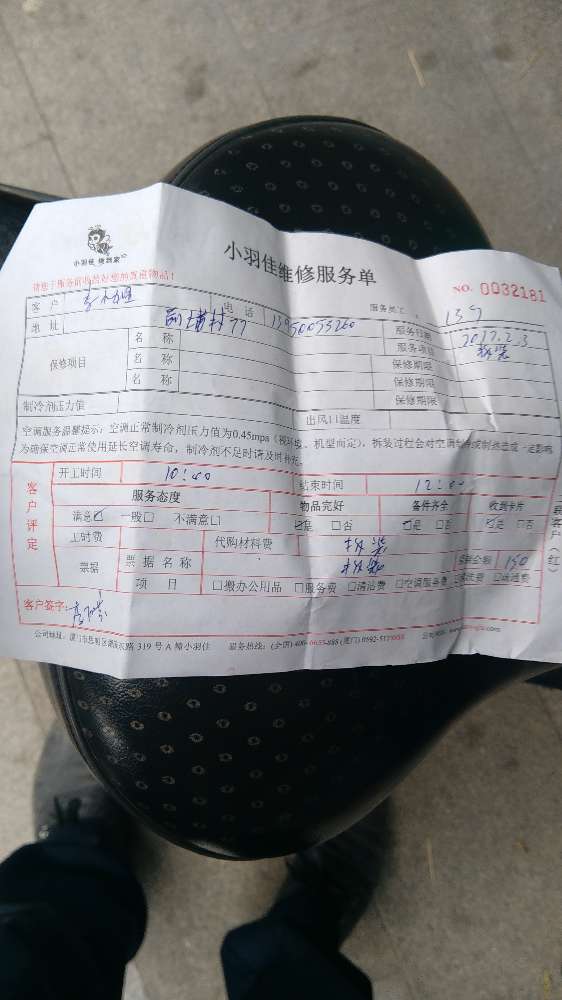 小羽佳 使到家
小羽佳维修服务单
请您于服务前收拾好您的贵重物品！
NO. 0032181
客 户
电 话
服务员工：
地 址 前埔村77
服务日期 2017.2.3
服务项目 拆装
保修项目
名 称 保修期限
名 称 保修期限
名 称 保修期限
制冷剂压力值 出风口温度
空调服务温馨提示：空调正常制冷剂压力值为0.45mpa（视环境、机型而定），拆装过程会对空调制冷或制热造成一定影响
为确保空调正常使用延长空调寿命，制冷剂不足时请及时补充。
客户评定
开工时间 10:40 结束时间 12:00
服务态度 物品完好 备件齐全 收到卡片
满意☑ 一般□ 不满意□ ☑是 □否 ☑是 □否 ☑是 □否
工时费 代购材料费 拆装
票据 票据名称 拆装 金额 150
项 目 □搬办公用品 □服务费 □清洁费 □空调服务费
客户签字：
公司地址：厦门市思明区 319号A幢小羽佳 服务热线：(全国) 400-6633-888 (厦门) 0592-
客户（红）